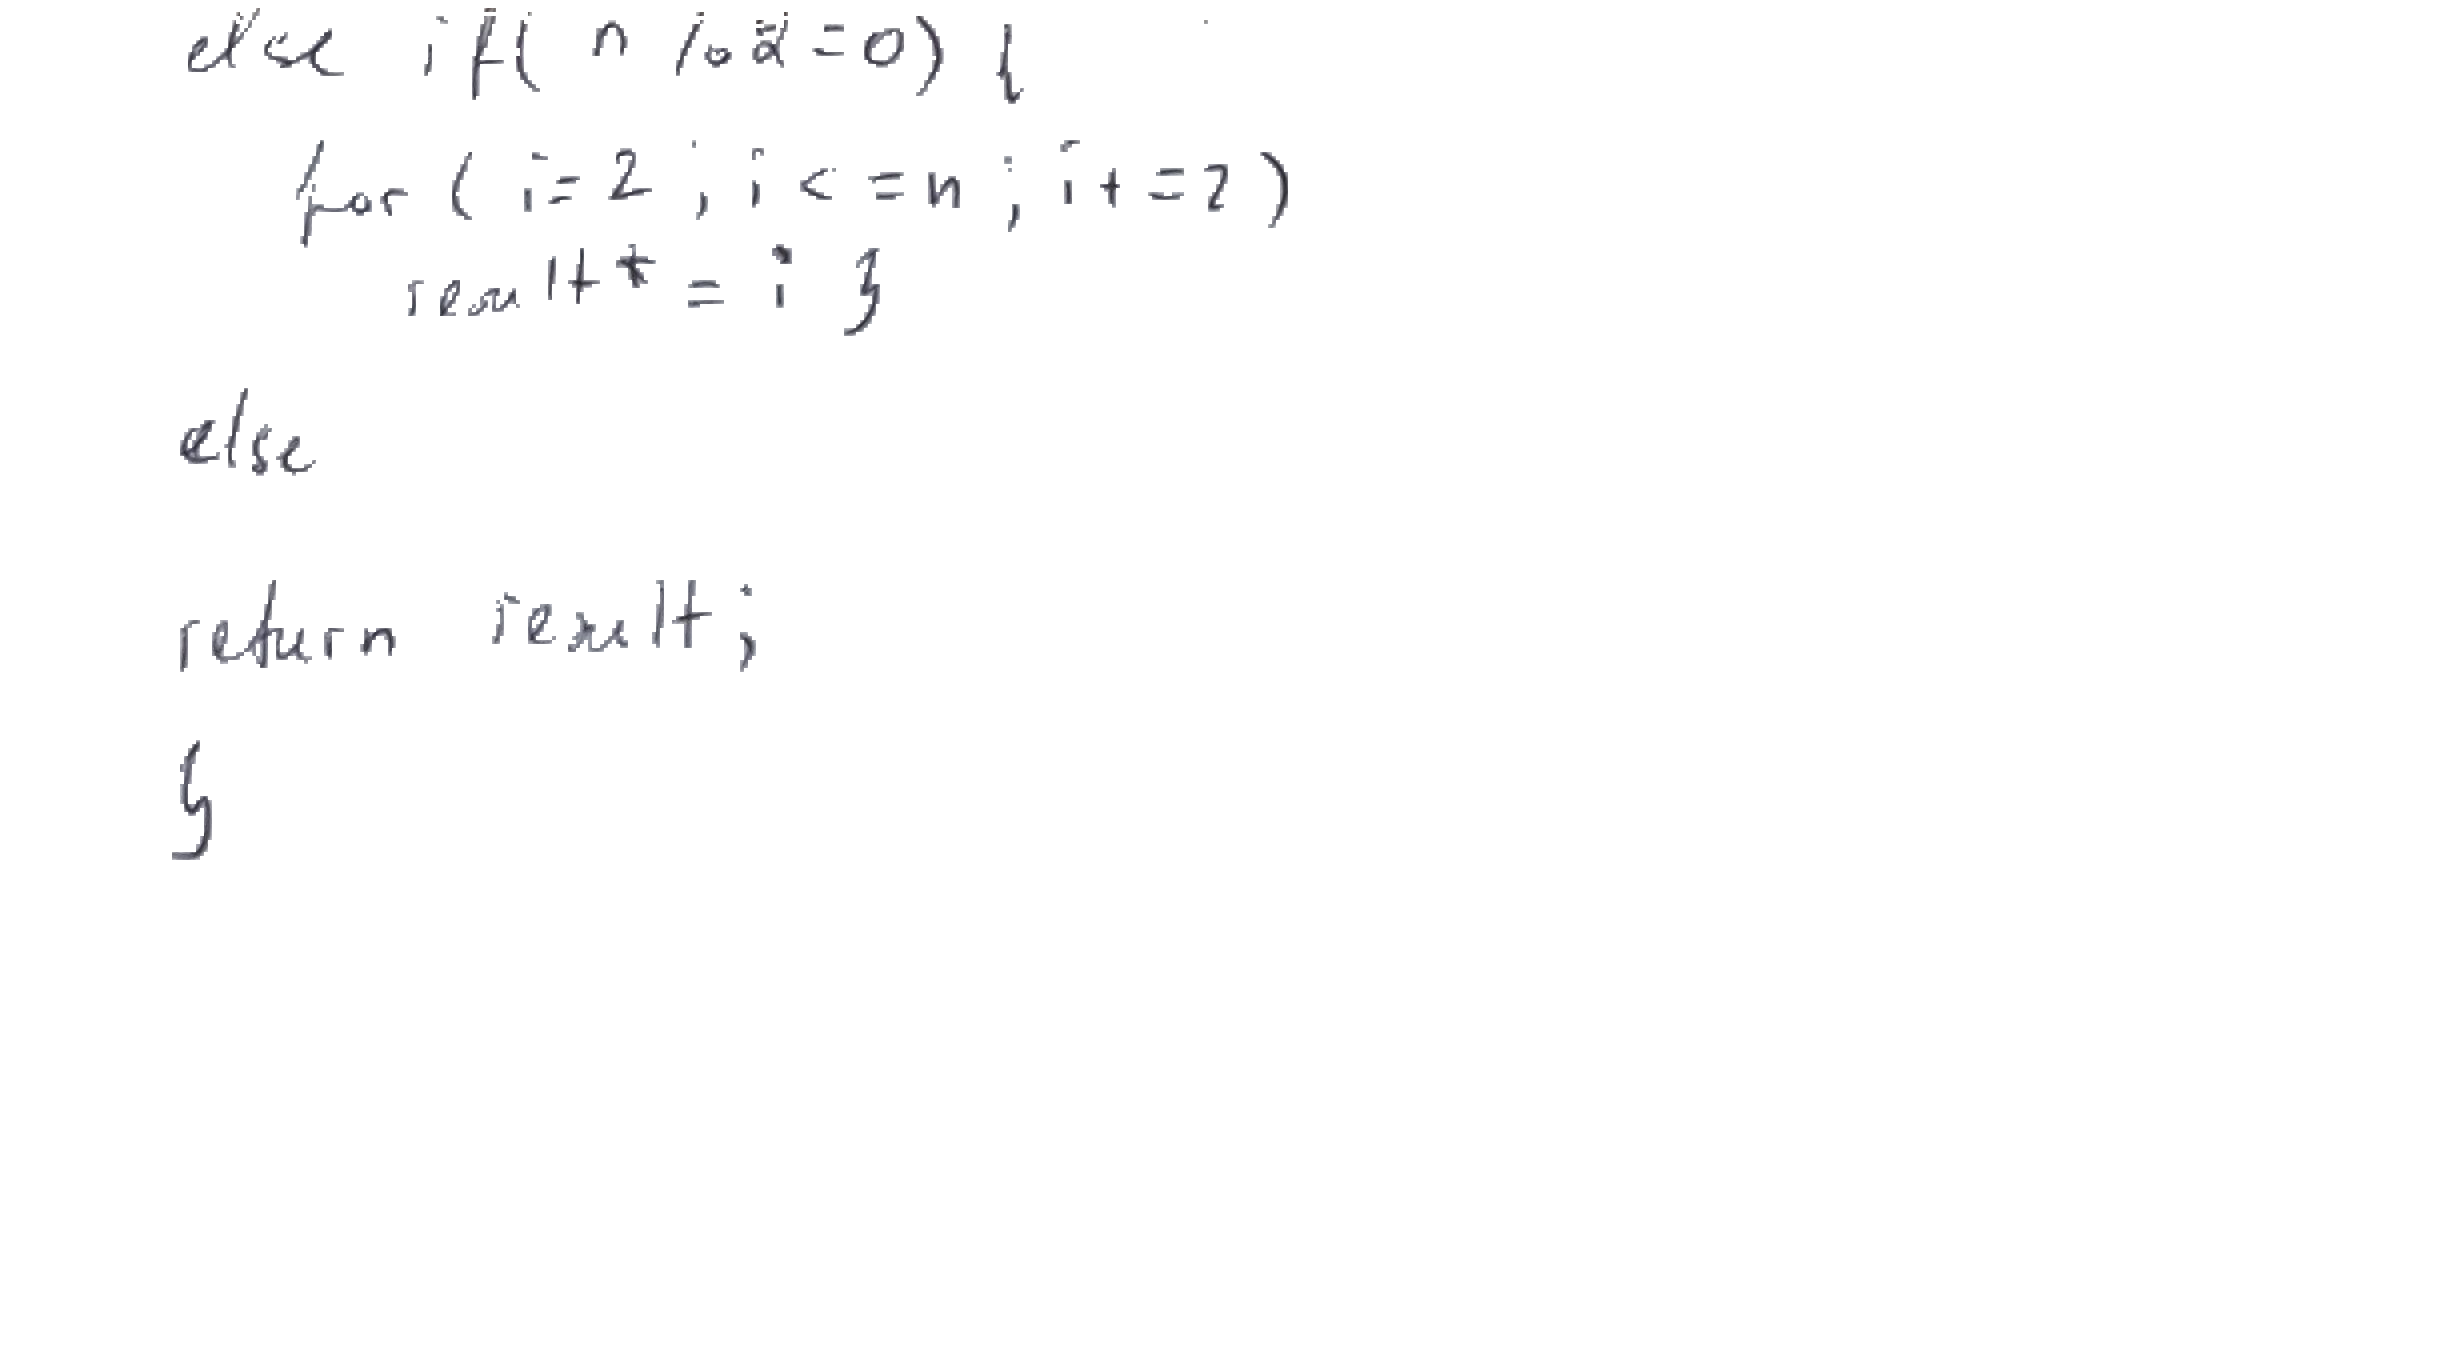 else if( n %2=0) {
for ( i=2 ; i <=n ; i+=2)
result*= i }
else
return result;
}